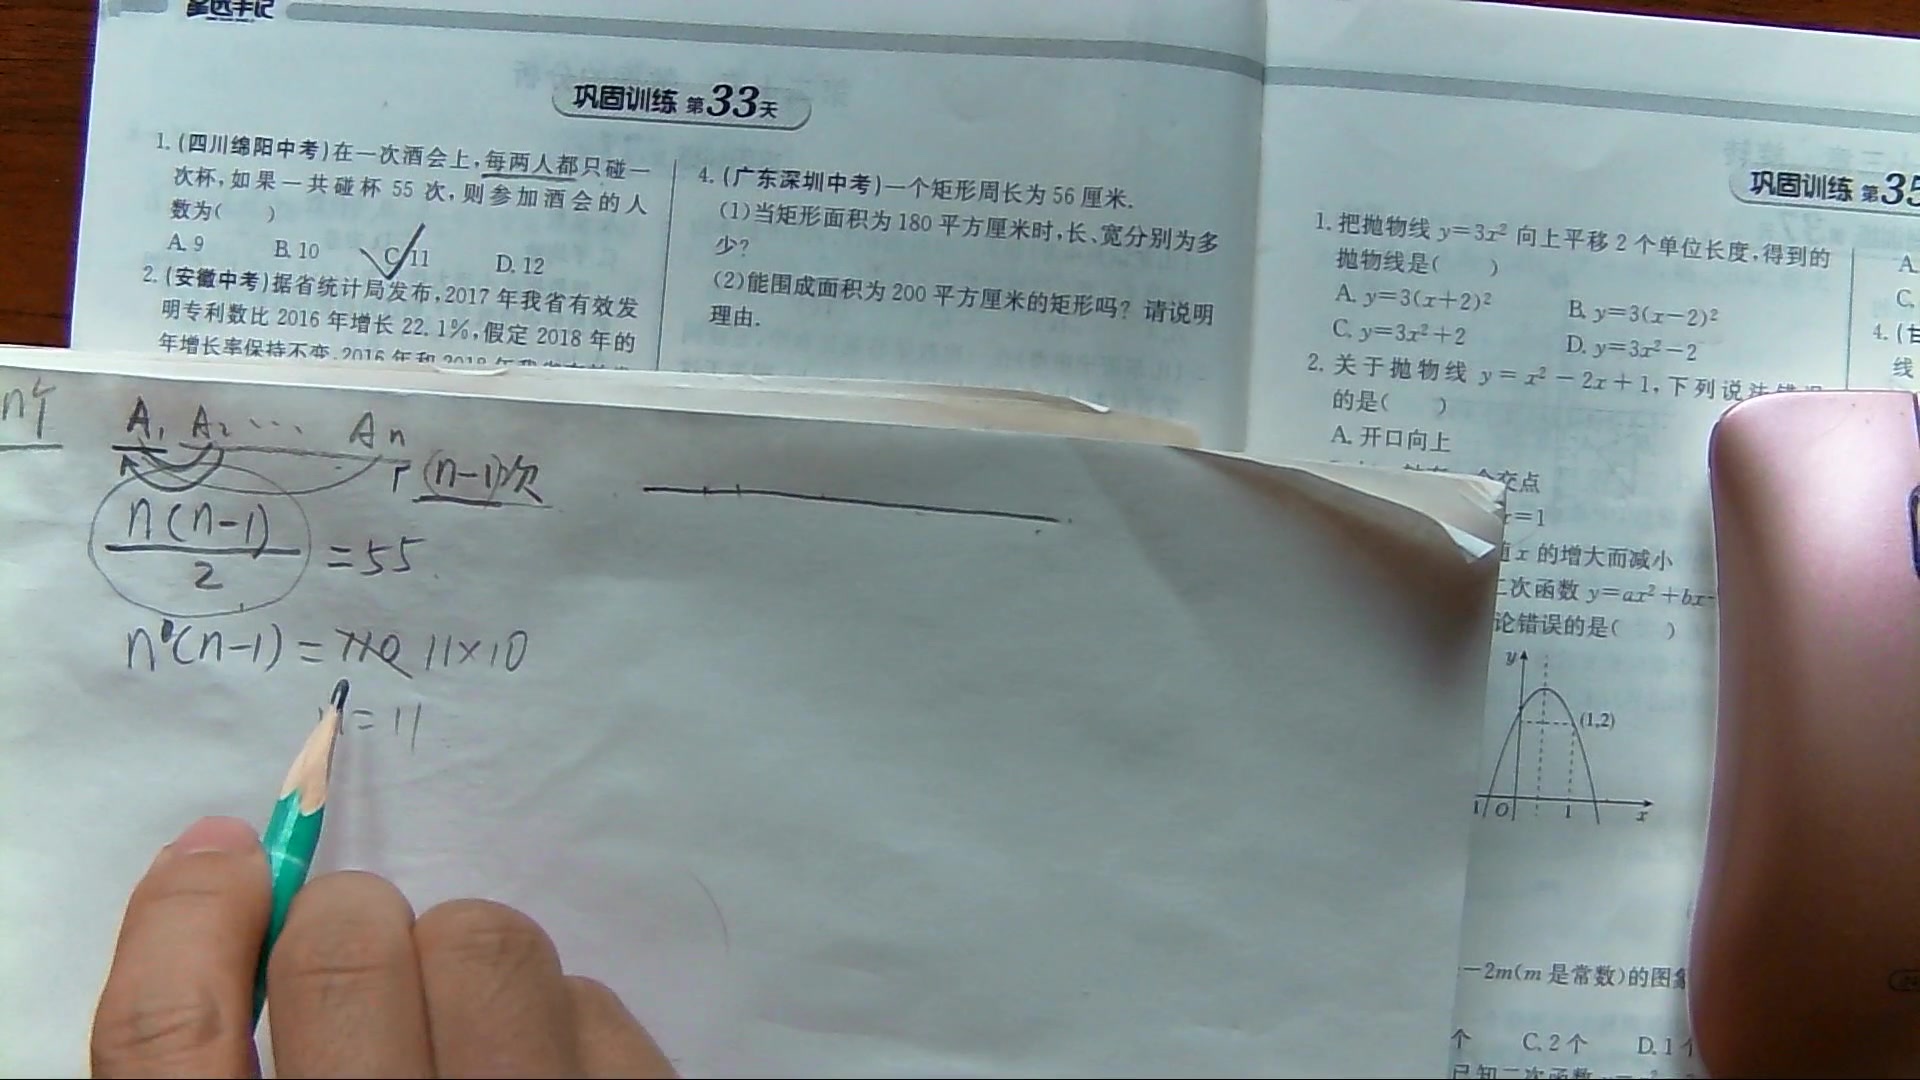 巩固训练 第33天
1. (四川绵阳中考)在一次酒会上,每两人都只碰一
次杯,如果一共碰杯 55 次,则参加酒会的人
数为( )
A. 9 B. 10 C. 11 D. 12
2. (安徽中考)据省统计局发布,2017 年我省有效发
明专利数比 2016 年增长 22.1%,假定 2018 年的
年增长率保持不变,2016 年和 2018 年我省
4. (广东深圳中考)一个矩形周长为 56 厘米.
(1)当矩形面积为 180 平方厘米时,长、宽分别为多
少?
(2)能围成面积为 200 平方厘米的矩形吗? 请说明
理由.
巩固训练 第35
1. 把抛物线 y=3x² 向上平移 2 个单位长度,得到的
抛物线是( )
A. y=3(x+2)² B. y=3(x−2)²
C. y=3x²+2 D. y=3x²−2
2. 关于抛物线 y=x²−2x+1,下列说法错误
的是( )
A. 开口向上
个交点
x=1
值 x 的增大而减小
二次函数 y=ax²+bx
论错误的是( )
y
(1,2)
1 O 1 x
−2m(m 是常数)的图象
个 C. 2 个 D. 1 个
已知二次函数
A.
C.
4. (甘
线
n个 A₁ A₂ ... An
(n-1)次
n(n-1)
2
=55
n(n-1)=110 11×10
n=11